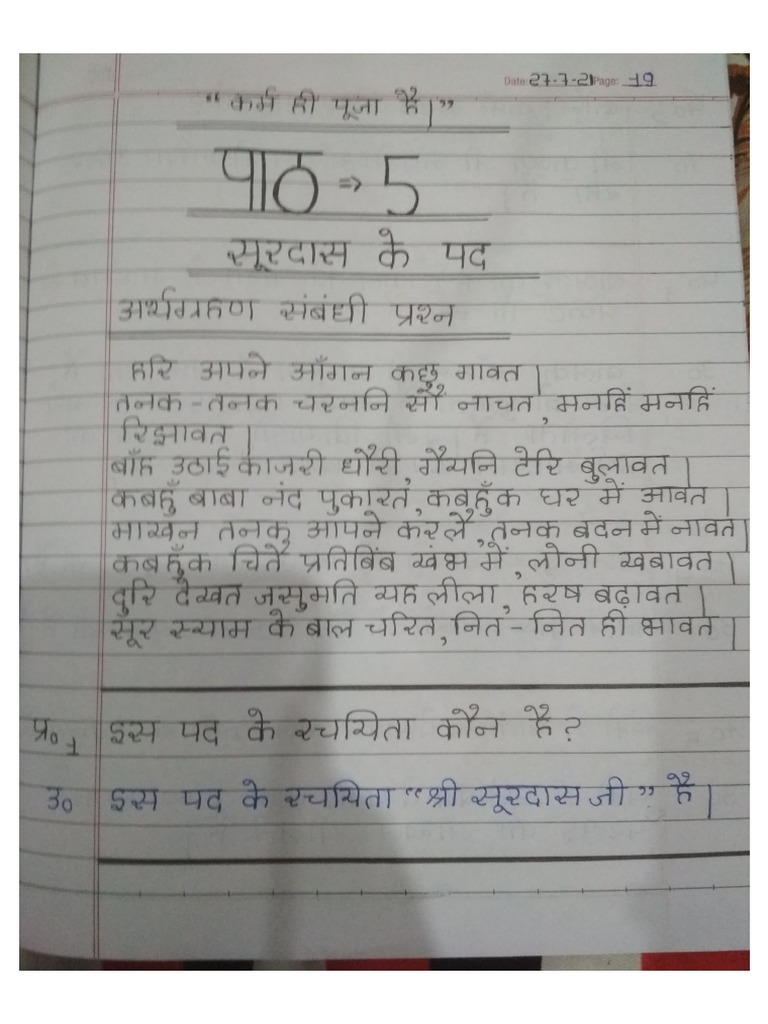 Date: 27-7-21 Page: 19
“कर्म ही पूजा है।”
पाठ ⇒ 5
सूरदास के पद
अर्थग्रहण संबंधी प्रश्न
हरि अपने आँगन कछु गावत।
तनक-तनक चरननि सौं नाचत, मनहिं मनहिं
रिझावत।
बाँह उठाई काजरी धौरी, गैयनि टेरि बुलावत।
कबहुँ बाबा नंद पुकारत, कबहुँक घर में आवत।
माखन तनक आपने करलै, तनक बदन में नावत।
कबहुँक चितै प्रतिबिंब खंभ में, लोनी खबावत।
दुरि देखत जसुमति यह लीला, हरष बढ़ावत।
सूर स्याम के बाल चरित, नित-नित ही भावत।
प्र॰ 1 इस पद के रचयिता कौन है?
उ॰ इस पद के रचयिता “श्री सूरदास जी” है।